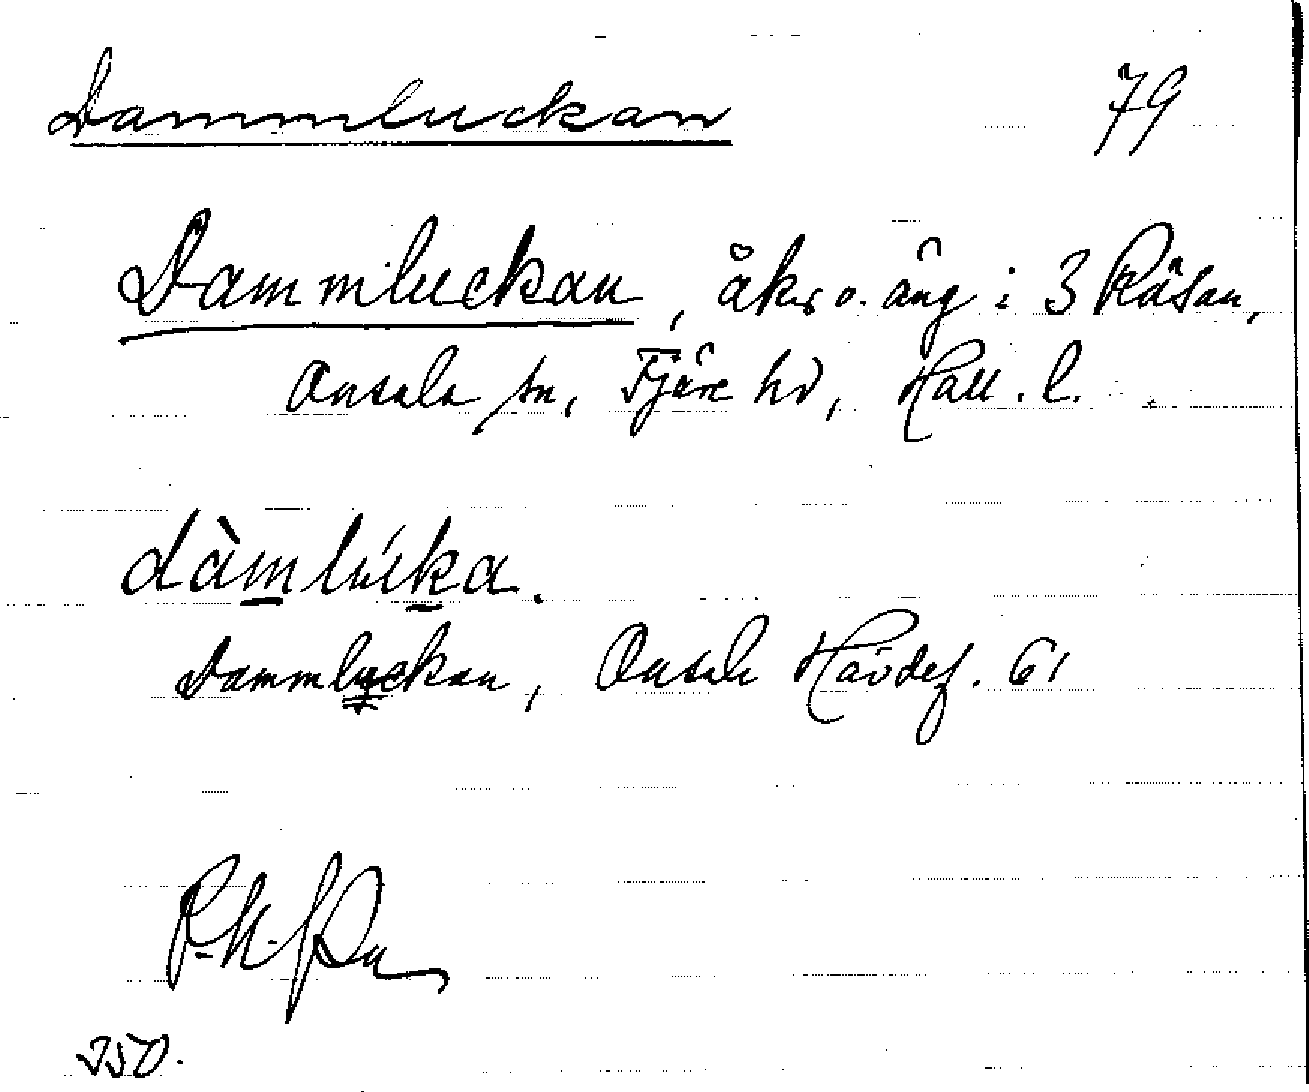 Dammluckan 79
Dammluckan, åker o. äng i 3 Råsan,
Onsala sn, Fjäre hd, Hall. l.
dàmlúka.
Dammluckan, Onsala Hävdef. 61
350.